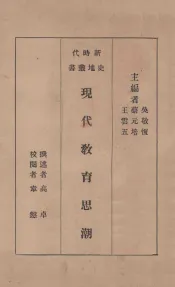 主編者
吳敬恆
蔡元培
王雲五
新時代
史地叢書
現代敎育思潮
撰述者 高卓
校閱者 韋慤